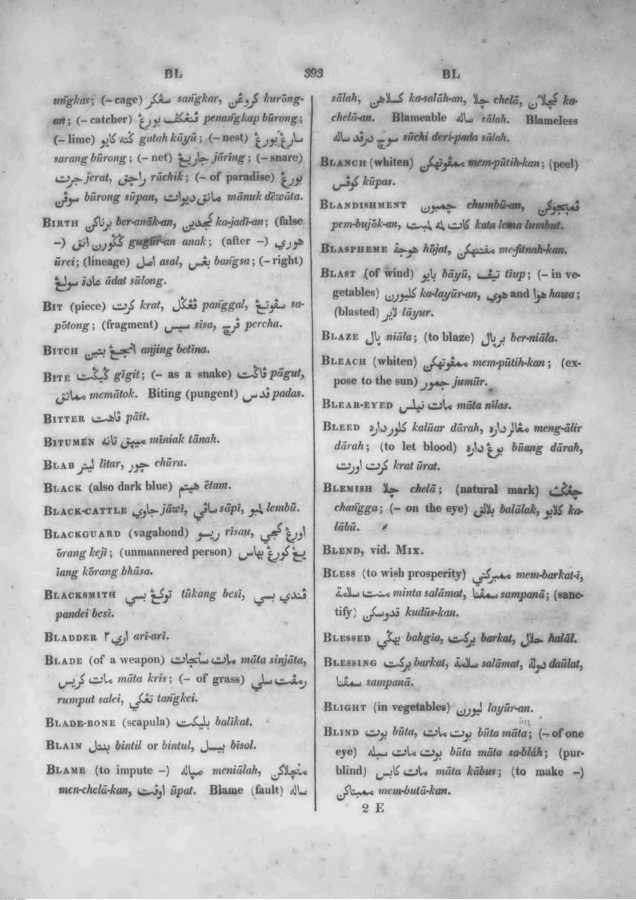 BL 393 BL
ungkas; (– cage) سڠكر sangkar, كروڠن kurông-
an; (– catcher) ڤنڠكڤ بورڠ penangkap būrong;
(– lime) گته كايو gatah kāyū; (– nest) سارڠ بورڠ
sarang būrong; (– net) جاريڠ jāring; (– snare)
جرت jerat, راچق rāchik; (– of paradise) بورڠ
سوڤن būrong sūpan, مانق ديوات mānuk dēwāta.
BIRTH برانكن ber-anāk-an, كجدين ka-jadī-an; (false
–) گڬورن انق gugūr-an anak; (after –) هوري
ūrei; (lineage) اصل asal, بڠس bangsa; (– right)
عادة سولڠ ādat sūlong.
BIT (piece) كرت krat, ڤڠگل panggal, سڤوتڠ sa-
pōtong; (fragment) سيس sīsa, ڤرچ percha.
BITCH انجڠ بتين anjing betīna.
BITE گيگت gīgit; (– as a snake) ڤاگت pāgut,
مماتق memātok. Biting (pungent) ڤدس padas.
BITTER ڤاهت pāit.
BITUMEN مييق تانه mīniak tānah.
BLAB ليتر lītar, چور chūra.
BLACK (also dark blue) هيتم ētam.
BLACK-CATTLE جاوي jāwī, ساڤي sāpī, لمبو lembū.
BLACKGUARD (vagabond) ريسو rīsau, اورڠ كجي
ōrang kejī; (unmannered person) يڠ كورڠ بهاس
īang kōrang bhāsa.
BLACKSMITH توكڠ بسي tūkang besī, ڤندي بسي
pandei besī.
BLADDER اري٢ arī-arī.
BLADE (of a weapon) مات سنجات māta sinjāta,
مات كريس māta krīs; (– of grass) رمڤت سلي
rumput salei, تڠكي tangkei.
BLADE-BONE (scapula) بليكت balīkat.
BLAIN بنتل bintil or bintul, بيسل bīsol.
BLAME (to impute –) ميالَه meniūlah, منچلاكن
men-chelā-kan, اوڤت ūpat. Blame (fault) ساله
sālah, كسلاهن ka-salāh-an, چلا chelā, كچلاٴن ka-
chelā-an. Blameable ساله sālah. Blameless
سوچ درڤد ساله sūchi deri-pada sālah.
BLANCH (whiten) ممڤوتهكن mem-pūtih-kan; (peel)
كوڤس kūpas.
BLANDISHMENT چمبون chumbū-an, ڤمبجوكن
pem-bujōk-an, كات لمه لمبت kata lema lumbut.
BLASPHEME هوجة hōjat, مفتنهكن me-fitnah-kan.
BLAST (of wind) بايو bāyū, تيڤ tīup; (– in ve-
getables) كليورن ka-layūr-an, هوي and هوا hawa;
(blasted) لاير lāyur.
BLAZE يال niāla; (to blaze) بريال ber-niāla.
BLEACH (whiten) ممڤوتهكن mem-pūtih-kan; (ex-
pose to the sun) جمور jumūr.
BLEAR-EYED مات نيلس māta nīlas.
BLEED كلور داره kalūar dārah, مڠالر داره meng-ālir
dārah; (to let blood) بوڠ داره būang dārah,
كرت اورت krat ūrat.
BLEMISH چلا chelā; (natural mark) چڠگ
changga; (– on the eye) بلالق balālak, كلابو ka-
lābū.
BLEND, vid. MIX.
BLESS (to wish prosperity) ممبركتي mem-barkat-ī,
منت سلامة minta salāmat, سمڤنا sampanā; (sanc-
tify) قدوسكن kudūs-kan.
BLESSED بهگي bahgia, بركت barkat, حلال halāl.
BLESSING بركت barkat, سلامة salāmat, دولة daūlat,
سمڤنا sampanā.
BLIGHT (in vegetables) ليورن layūr-an.
BLIND بوت būta, بوت مات būta māta; (– of one
eye) بوت مات سبله būta māta sa-blāh; (pur-
blind) مات كابس māta kābus; (to make –)
ممبتاكن mem-butā-kan.
2 E